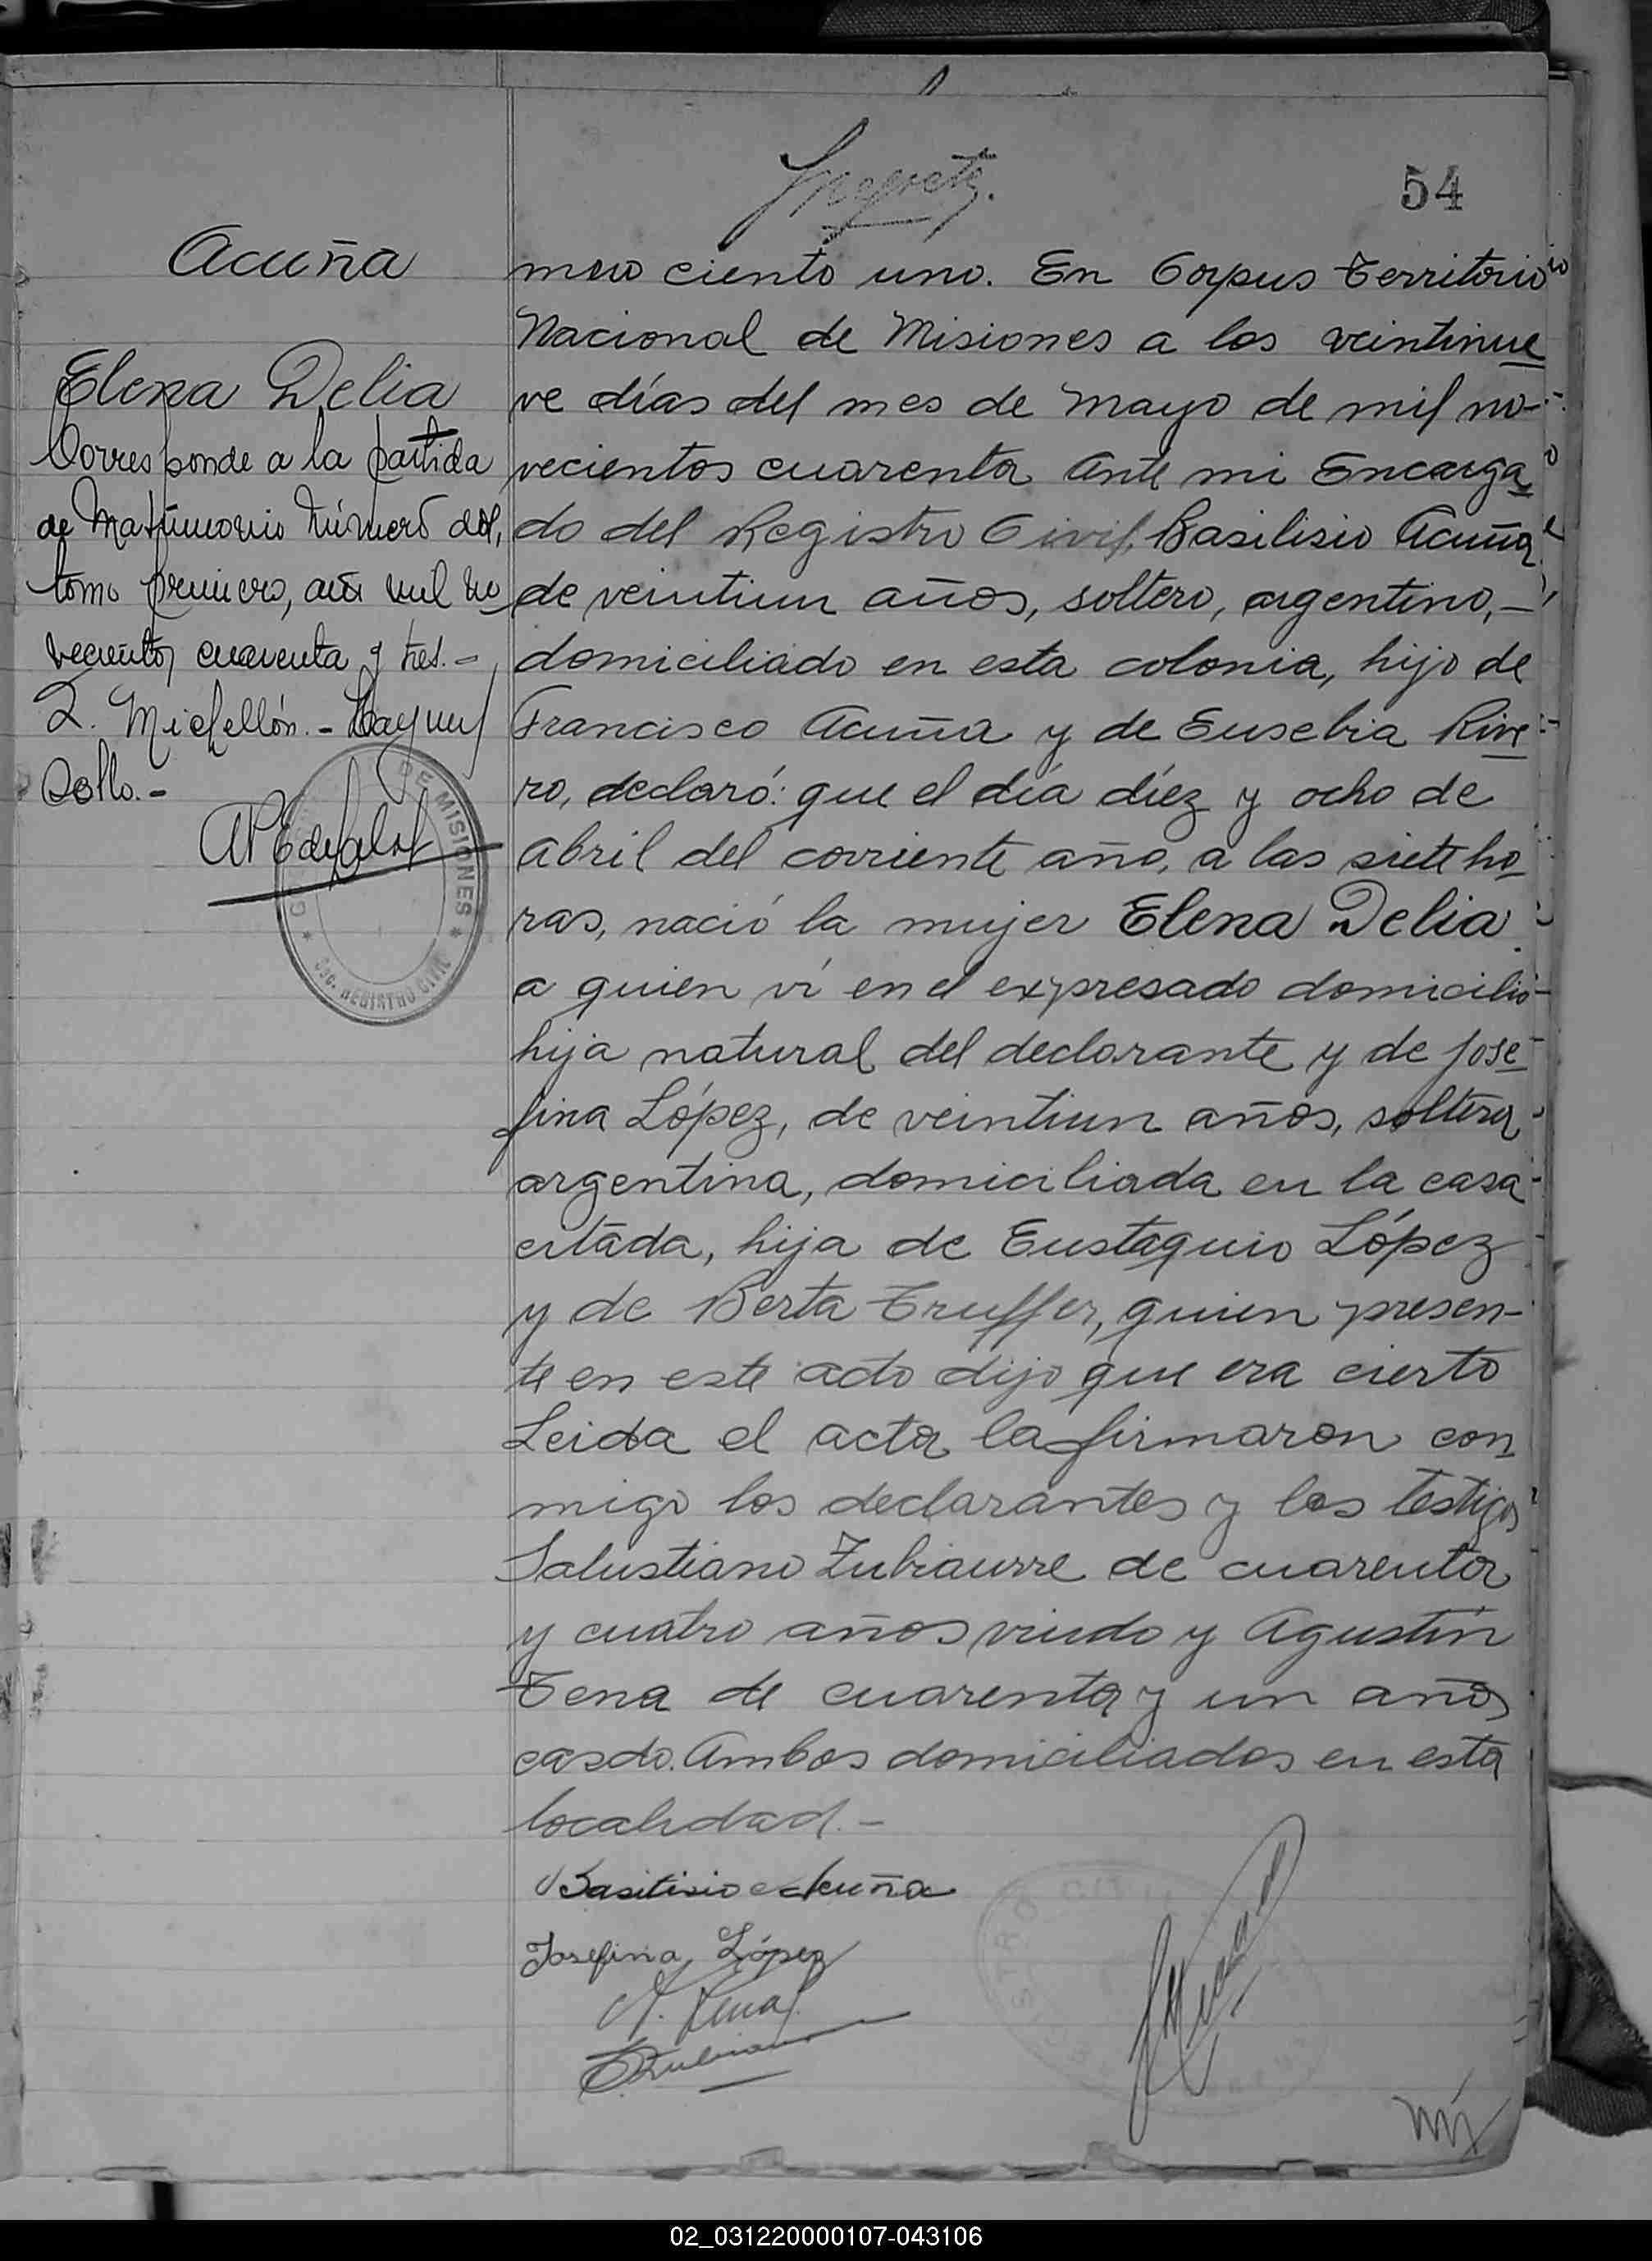 54
Acuña
Elena Delia
Corresponde a la partida
de Matrimonio número dos,
tomo primero, año mil no
vecientos cuarenta y tres.-
L. Michellón.- Hay un
Sello.-
DE MISIONES
REGISTRO CIVIL
mero ciento uno. En Corpus Territorio
Nacional de Misiones a los veintinue
ve días del mes de Mayo de mil no-
vecientos cuarenta Ante mi Encarga
do del Registro Civil, Basilisio Acuña
de veintiun años, soltero, argentino,-
domiciliado en esta colonia, hijo de
Francisco Acuña y de Eusebia Rive
ro, declaró: que el día diez y ocho de
Abril del corriente año, a las siete ho
ras, nació la mujer Elena Delia
a quien ví en el expresado domicilio
hija natural del declarante y de Jose
fina López, de veintiun años, soltera
argentina, domiciliada en la casa
citada, hija de Eustaquio López
y de Berta Truffer, quien presen-
te en este acto dijo que era cierto
Leida el acta la firmaron con
migo los declarantes y los testigos
Salustiano Zubiaurre de cuarenta
y cuatro años viudo y Agustín
Tena de cuarenta y un años
casdo. Ambos domiciliados en esta
localidad.-
Basilisio Acuña
Josefina López
A. Tena
02_031220000107-043106